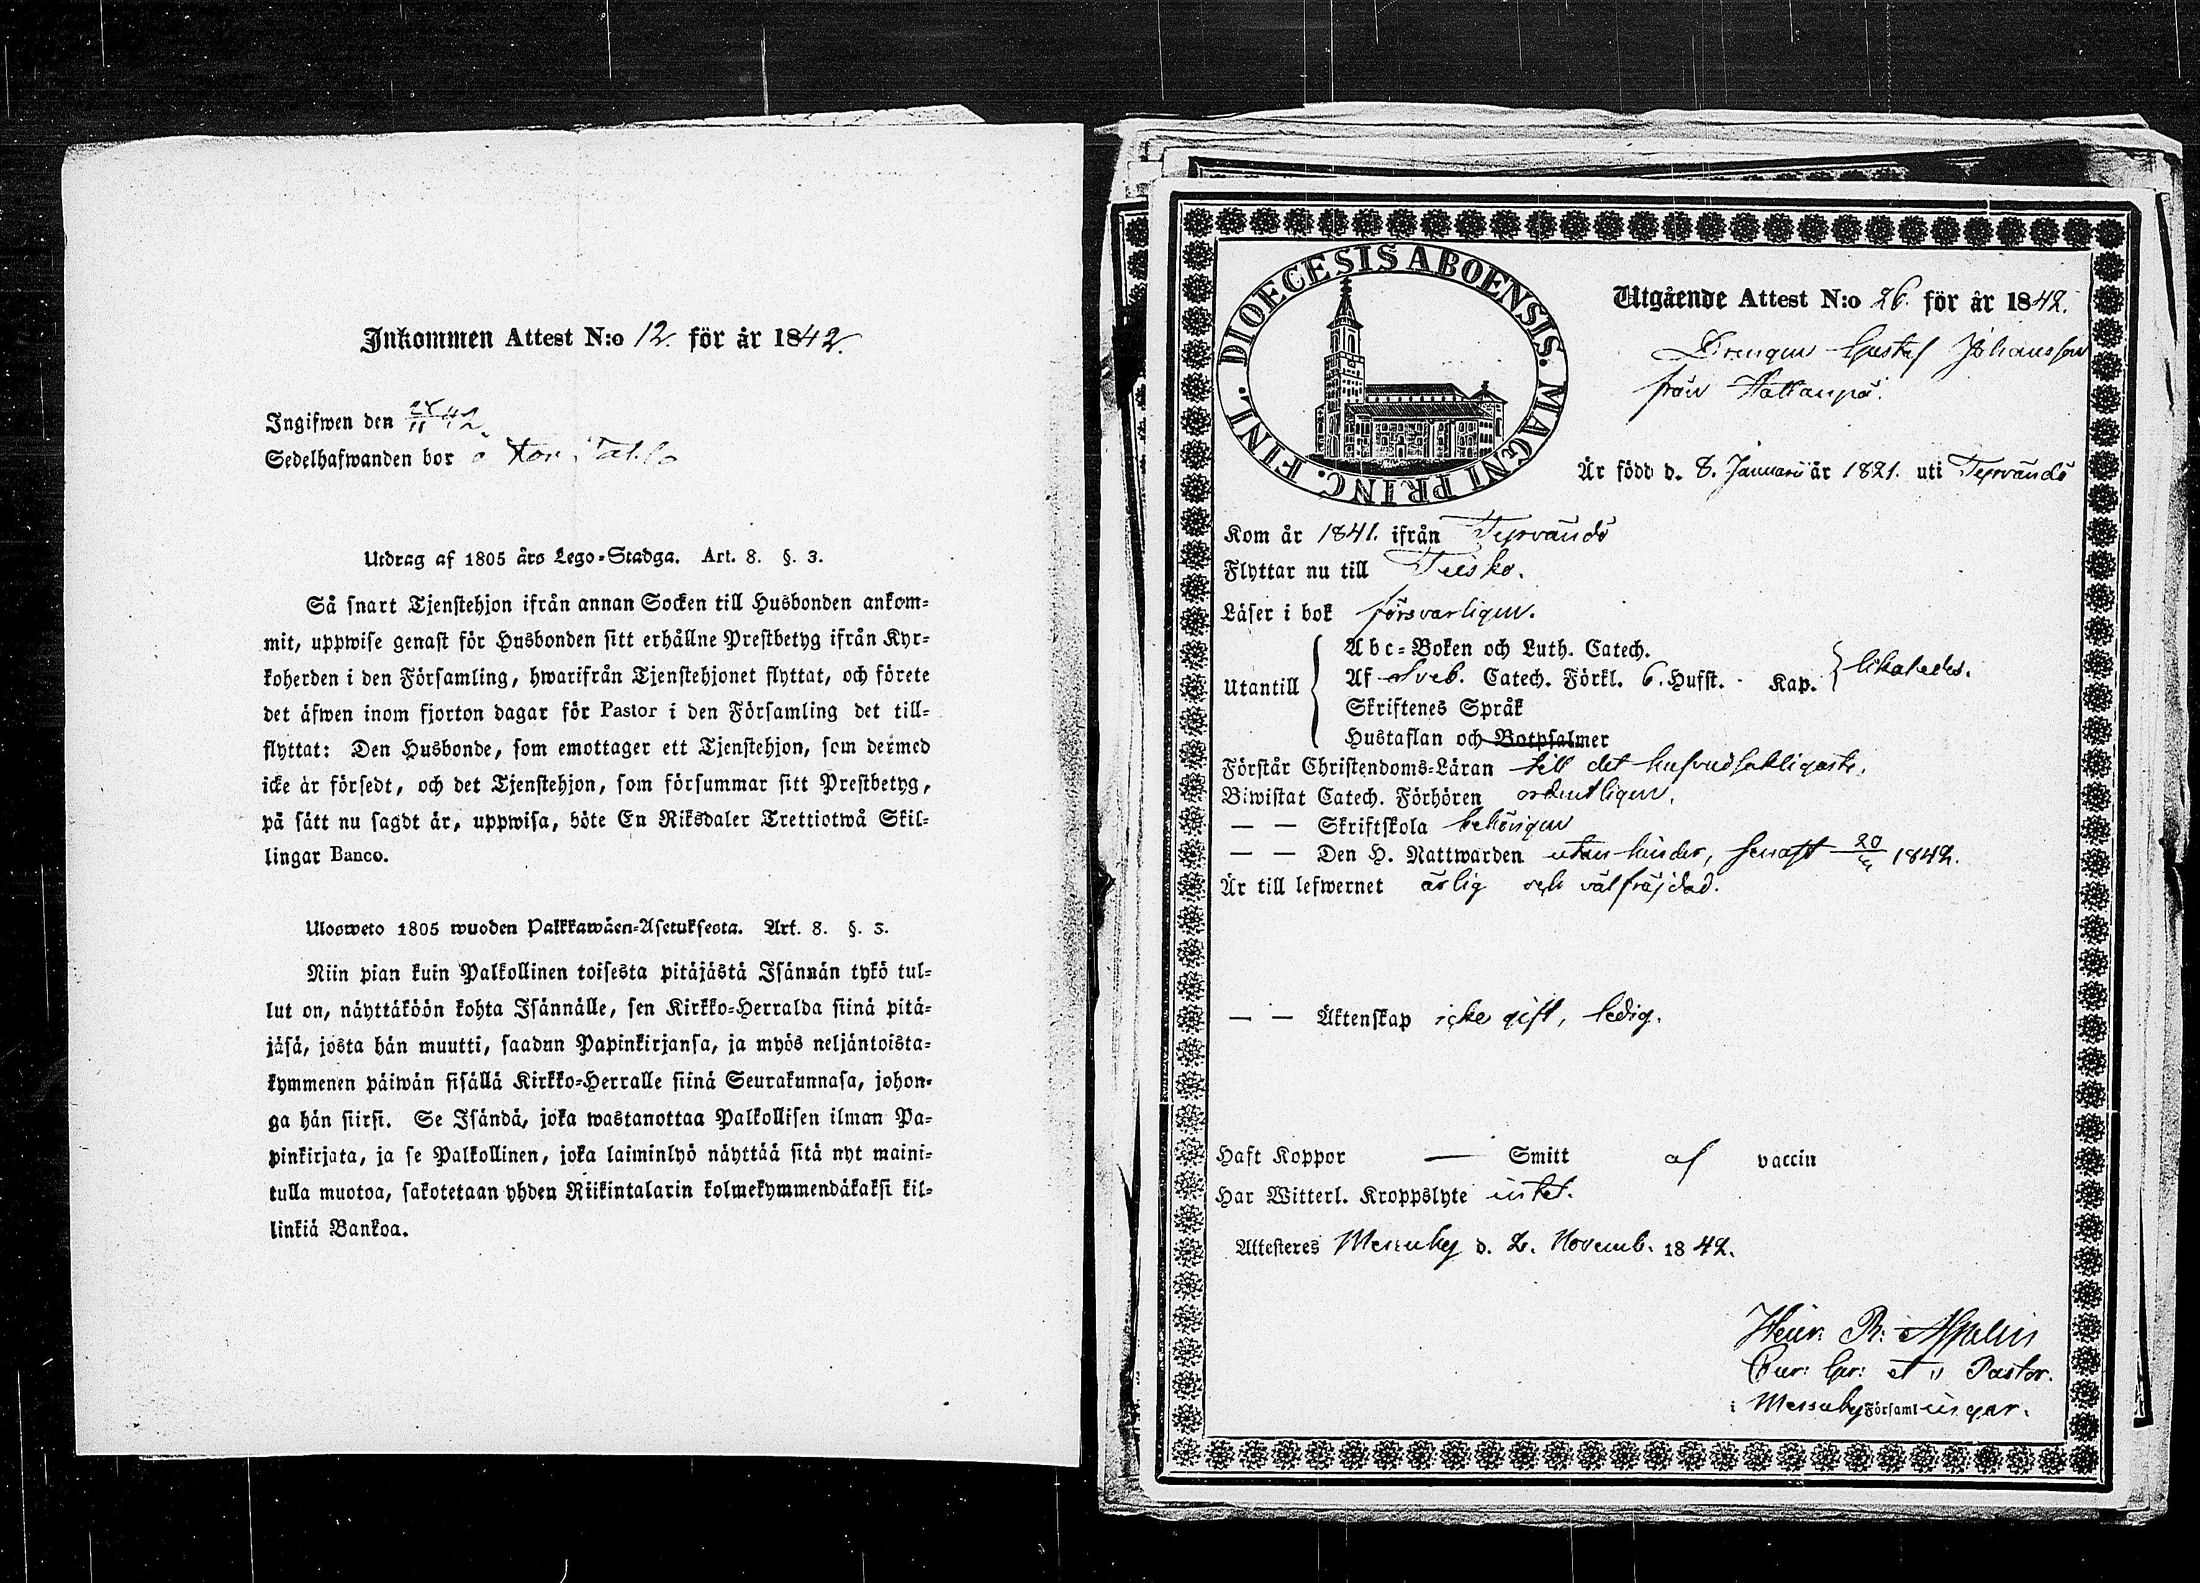 Inkommen Attest N:o 12. för år 1842.
Ingifwen den 24/11 42.
Sedelhafwanden bor å
Utdrag af 1805 års Lego-Stadga. Art. 8. §. 3.
Så snart Tjenstehjon ifrån annan Socken till Husbonden ankom-
mit, uppwise genast för Husbonden sitt erhållne Prestbetyg ifrån Kyr-
koherden i den Församling, hwarifrån Tjenstehjonet flyttat, och förete
det äfwen inom fjorton dagar för Pastor i den Församling det till-
flyttat: Den Husbonde, som emottager ett Tjenstehjon, som dermed
icke är försedt, och det Tjenstehjon, som försummar sitt Prestbetyg,
på sätt nu sagdt är, uppwisa, böte En Riksdaler Trettiotwå Skil-
lingar Banco.
Ulosweto 1805 wuoden Palkkawäen-Asetuksesta. Art. 8. §. 3.
Niin pian kuin Palkollinen toisesta pitäjästä Isännän tykö tul-
lut on, näyttäköön kohta Isännälle, sen Kirkko-Herralda siinä pitä-
jäsä, josta hän muutti, saadun Papinkirjansa, ja myös neljäntoista-
kymmenen päiwän sisällä Kirkko-Herralle siinä Seurakunnasa, johon-
ga hän siirsi. Se Isändä, joka wastanottaa Palkollisen ilman Pa-
pinkirjata, ja se Palkollinen, joka laiminlyö näyttää sitä nyt maini-
tulla muotoa, sakotetaan yhden Riikintalarin kolmekymmendäkaksi kil-
linkiä Bankoa.
DIOECESIS ABOENSIS. MAGNI PRINC. FINL.
Utgående Attest N:o 26. för år 1842.
Drengen Gustaf Johansson
från Hattanpä.
Är född d. 8. Januari år 1821. uti Tyrvändö
Kom år 1841. ifrån Tyrvändö
Flyttar nu till Teisko.
Läser i bok försvarligen.
Utantill { Abc-Boken och Luth. Catech.
Af Sveb. Catech. Förkl. 6. Hufst. Kap. } likaledes.
Skriftenes Språk
Hustaflan och Botpsalmer
Förstår Christendoms-Läran till det hufvudsakligaste.
Biwistat Catech. Förhören ordentligen.
— — Skriftskola behörigen
— — Den H. Nattwarden utan hinder, senast 20/ 1842.
Är till lefwernet ärlig och välfräjdad.
— — Äktenskap icke gift, ledig.
Haft Koppor — Smitt af vaccin
Har Witterl. Kroppslyte intet.
Attesteres Messuby d. 2. Novemb. 1842.
Heinr. R:
Cur: Gr: et v Pastor.
i Messuby Församlingar.